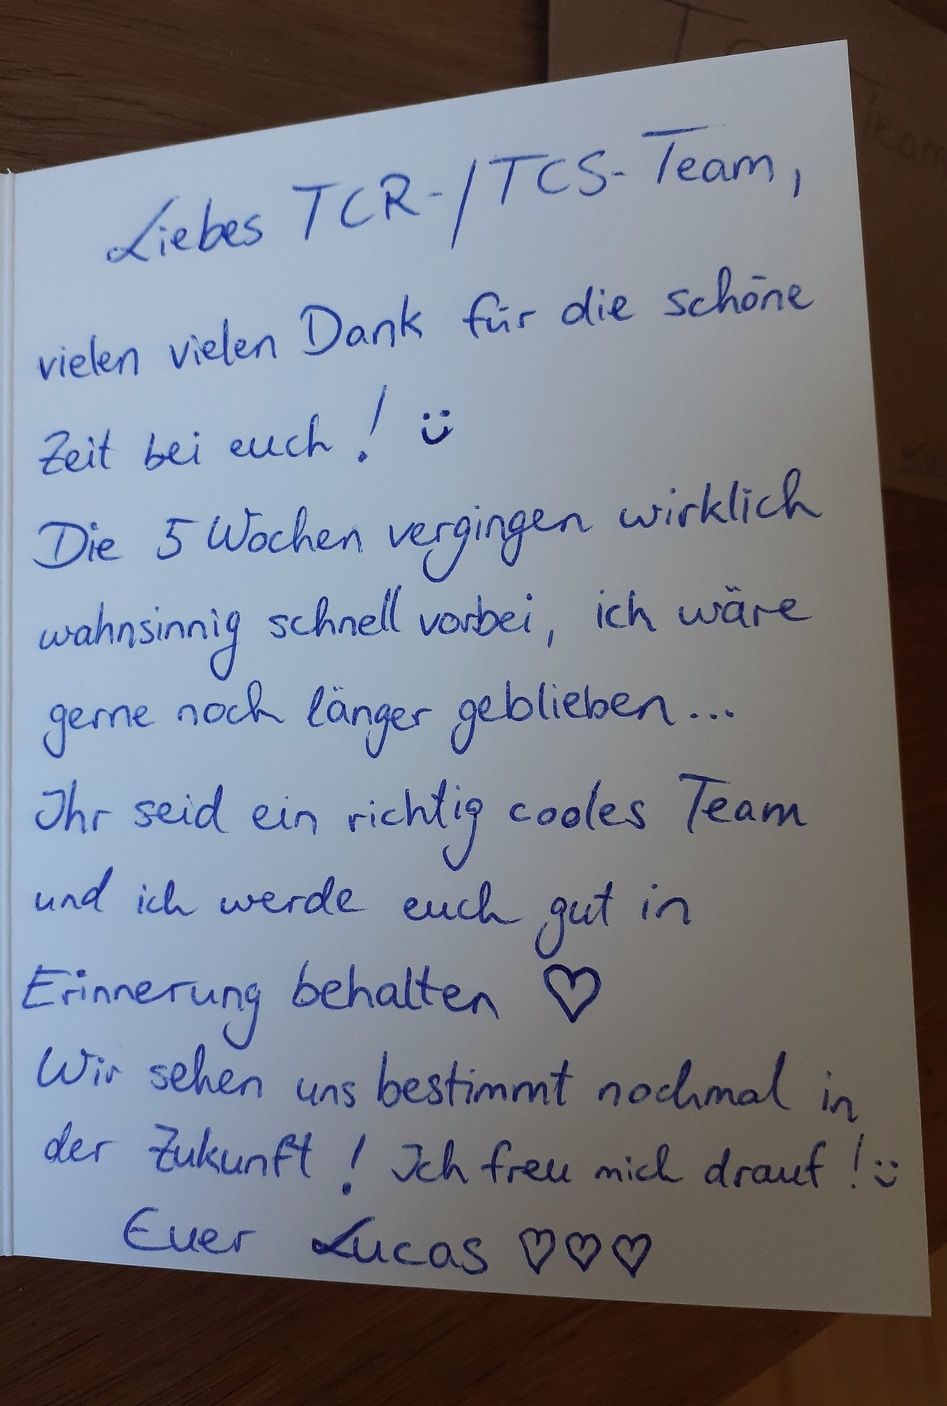 Liebes TCR-/TCS-Team,
vielen vielen Dank für die schöne
Zeit bei euch! Ü
Die 5 Wochen vergingen wirklich
wahnsinnig schnell vorbei, ich wäre
gerne noch länger geblieben...
Ihr seid ein richtig cooles Team
und ich werde euch gut in
Erinnerung behalten ♡
Wir sehen uns bestimmt nochmal in
der Zukunft! Ich freu mich drauf! Ü
Euer Lucas ♡♡♡